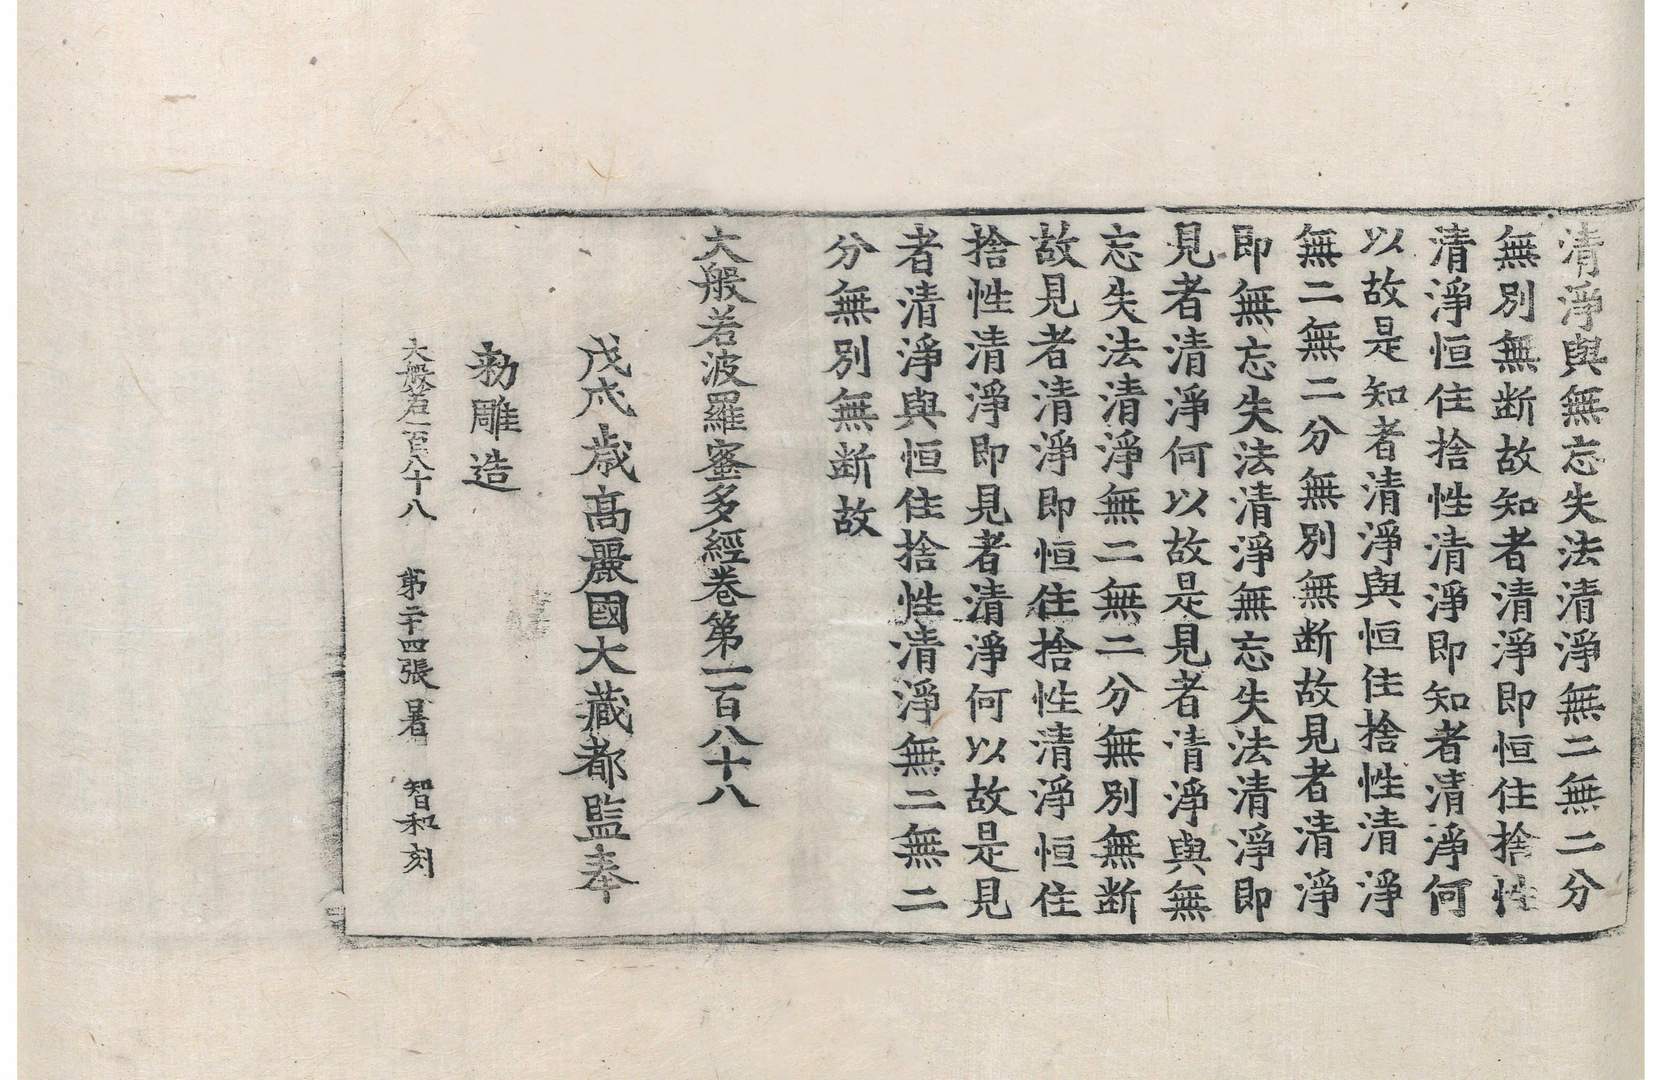 清淨與無忘失法清淨無二無二分
無別無断故知者清淨即恒住捨性
清淨恒住捨性清淨即知者清淨何
以故是知者清淨與恒住捨性清淨
無二無二分無別無断故見者清淨
即無忘失法清淨無忘失法清淨即
見者清淨何以故是見者清淨與無
忘失法清淨無二無二分無別無断
故見者清淨即恒住捨性清淨恒住
捨性清淨即見者清淨何以故是見
者清淨與恒住捨性清淨無二無二
分無別無断故
大般若波羅蜜多經卷第一百八十八
戊戌歲高麗國大藏都監奉
勅雕造
大般若一百八十八 第二十四張 暑 智和刻